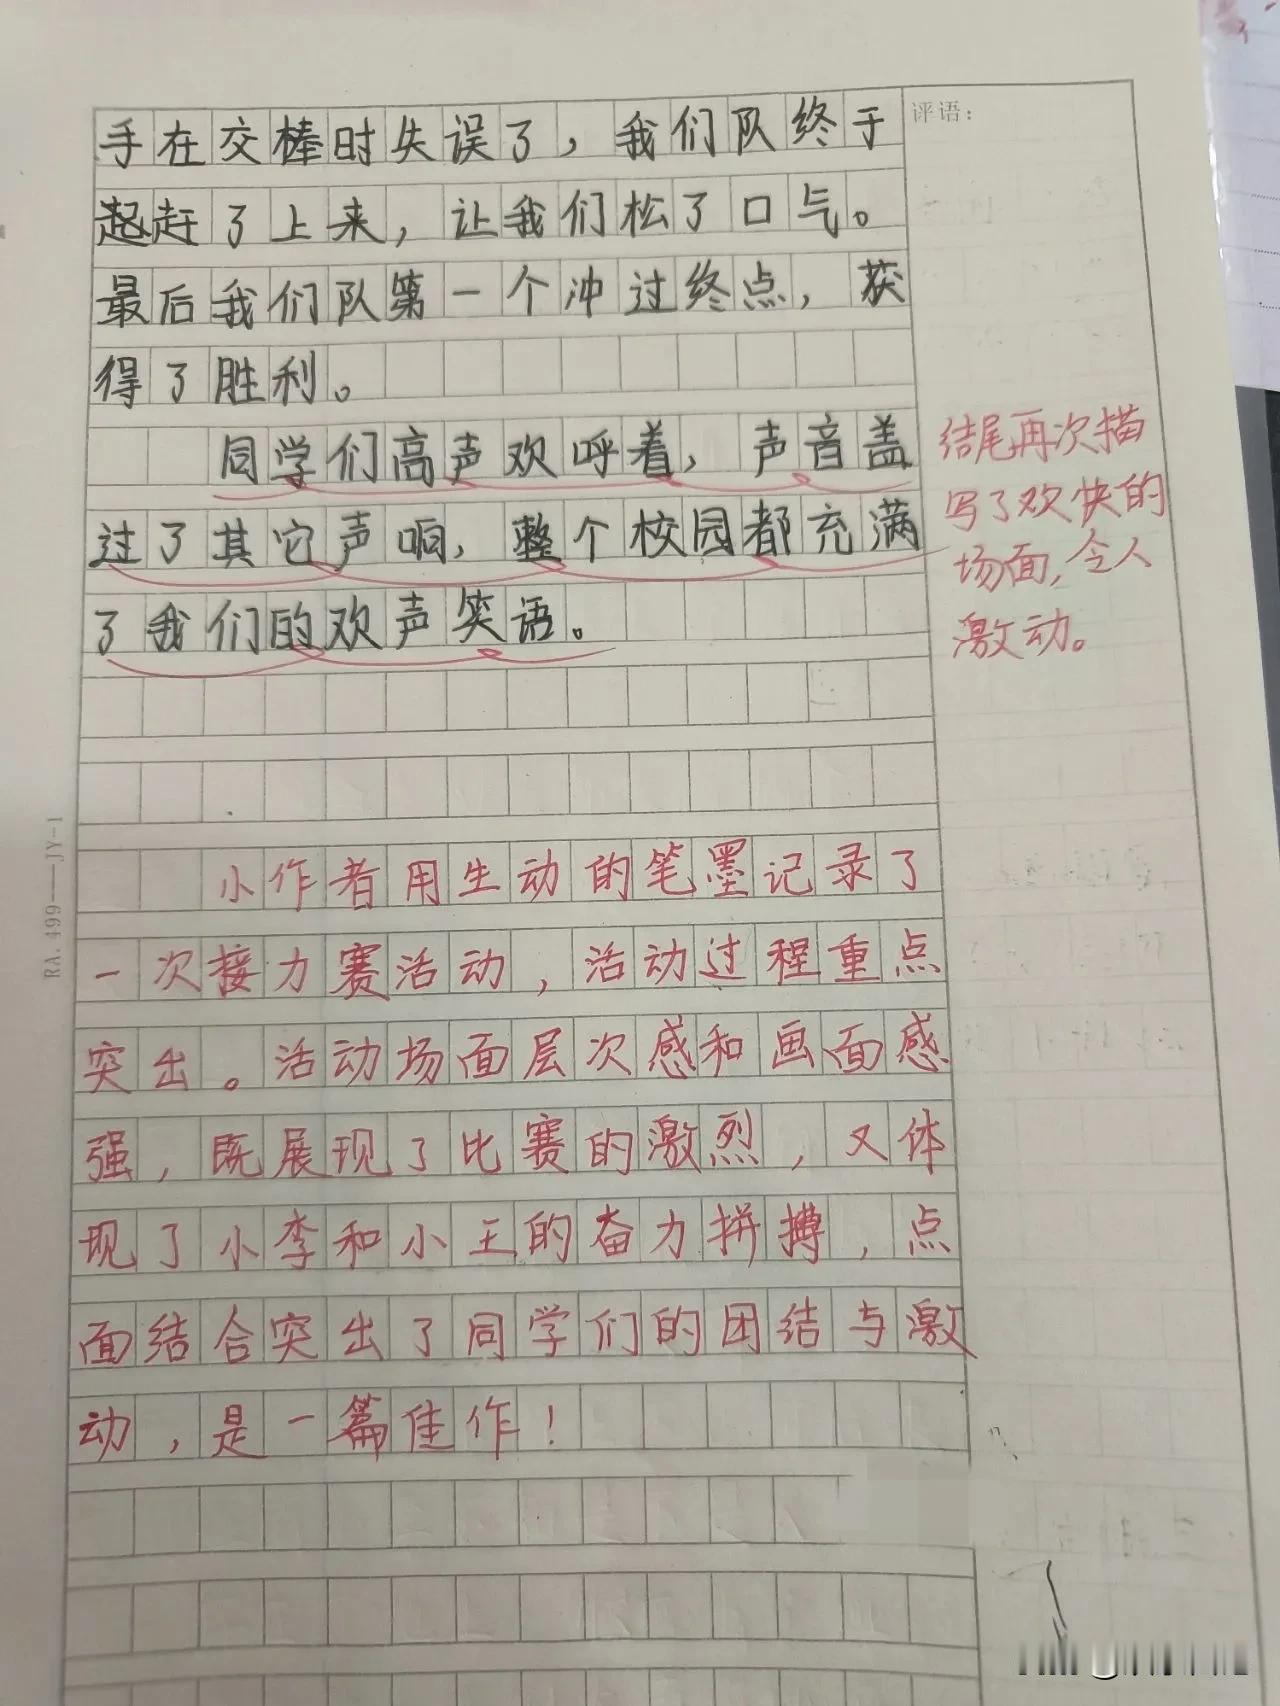 评语：
手在交棒时失误了，我们队终于
起赶了上来，让我们松了口气。
最后我们队第一个冲过终点，获
得了胜利。
同学们高声欢呼着，声音盖
过了其它声响，整个校园都充满
了我们的欢声笑语。
结尾再次描
写了欢快的
场面，令人
激动。
小作者用生动的笔墨记录了
一次接力赛活动，活动过程重点
突出。活动场面层次感和画面感
强，既展现了比赛的激烈，又体
现了小李和小王的奋力拼搏，点
面结合突出了同学们的团结与激
动，是一篇佳作！
RA.499——JY-1